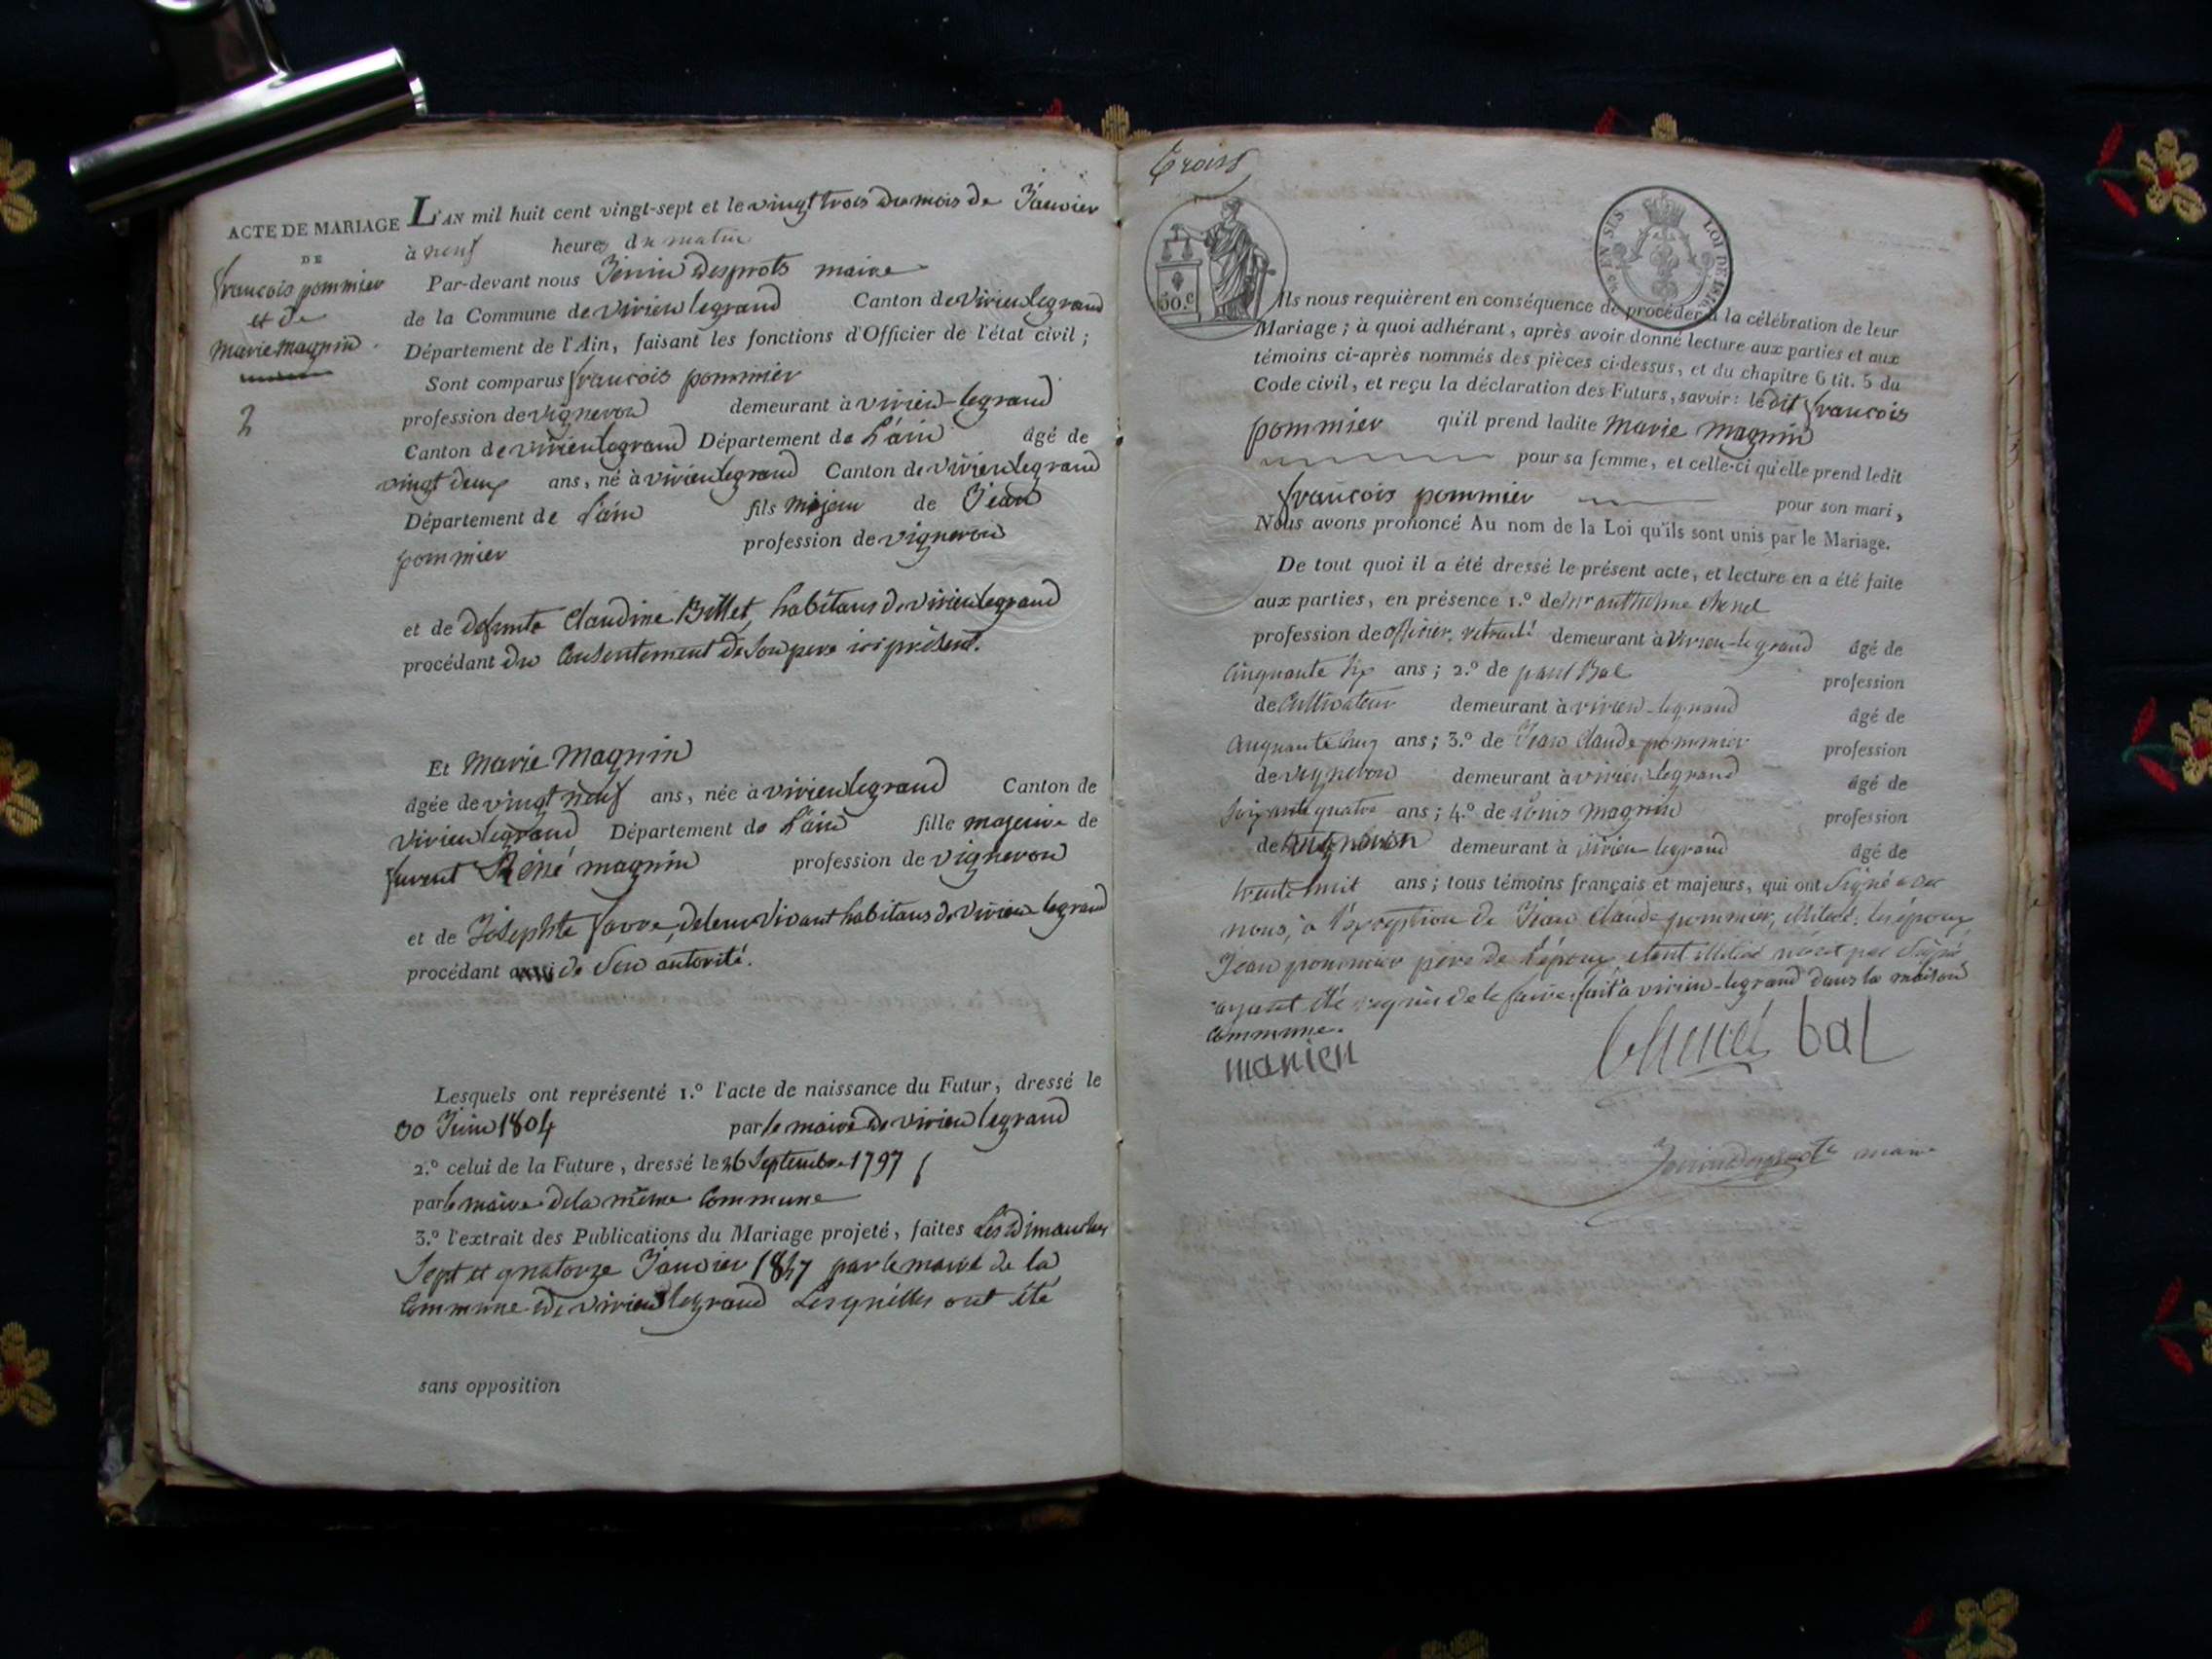 ACTE DE MARIAGE
DE
françois pommier
et de
marie magnin
2
L'AN mil huit cent vingt-sept et le vingt trois du mois de Janvier
à neuf heures du matin
Par-devant nous Jenin desprots maire
de la Commune de virieu legrand Canton de Virieu legrand
Département de l'Ain, faisant les fonctions d'Officier de l'état civil ;
Sont comparus françois pommier
profession de vigneron demeurant à virieu-legrand
Canton de virieu legrand Département de L'ain âgé de
vingt deux ans, né à virieu legrand Canton de virieu legrand
Département de L'ain fils majeur de Jean
pommier profession de vigneron
et de defunte Claudine Billet, habitans de virieu legrand
procédant du Consentement de Son pere ici présent.
Et Marie Magnin
âgée de vingt neuf ans, née à virieu legrand Canton de
Virieu legrand Département de L'ain fille majeure de
furent Réné magnin profession de vigneron
et de Josephte favre, de leur vivant habitans de virieu legrand
procédant de Son autorité.
Lesquels ont représenté 1.º l'acte de naissance du Futur, dressé le
30 Juin 1804 par le maire de virieu legrand
2.º celui de la Future, dressé le 26 Septembre 1797
par le maire de la même Commune
3.º l'extrait des Publications du Mariage projeté, faites Les dimanches
Sept et quatorze Janvier 1827 par le maire de la
Commune de virieu legrand Lesquelles ont été
sans opposition
trois
50.c
EN SUS
LOI DE 1816
Ils nous requièrent en conséquence de procéder à la célébration de leur
Mariage ; à quoi adhérant, après avoir donné lecture aux parties et aux
témoins ci-après nommés des pièces ci-dessus, et du chapitre 6 tit. 5 du
Code civil, et reçu la déclaration des Futurs, savoir : le dit françois
pommier qu'il prend ladite Marie Magnin
pour sa femme, et celle-ci qu'elle prend ledit
françois pommier pour son mari,
Nous avons prononcé Au nom de la Loi qu'ils sont unis par le Mariage.
De tout quoi il a été dressé le présent acte, et lecture en a été faite
aux parties, en présence 1.º de Mr anthelme chenel
profession de officier, retraité demeurant à Virieu-legrand âgé de
Cinquante Six ans ; 2.º de paul Bal profession
de Cultivateur demeurant à virieu-legrand âgé de
Cinquante Cinq ans ; 3.º de Jean Claude pommier profession
de vigneron demeurant à virieu legrand âgé de
Soixante quatre ans ; 4.º de Louis magnin profession
de vigneron demeurant à virieu legrand âgé de
trente huit ans ; tous témoins français et majeurs, qui ont Signé avec
nous, à l'exception de Jean Claude pommier, illiteré. les époux
Jean pommier père de L'époux etant illiteré n'ont pas Signé
ayant été requis de le faire. fait a virieu-legrand dans la maison
Commune.
manien
Chenel bal
Jenin desprots maire